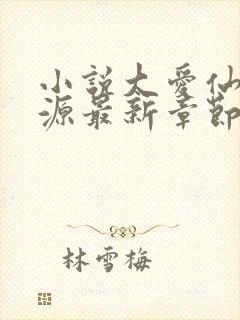 小説太愛仙
源最新章節
林雪梅